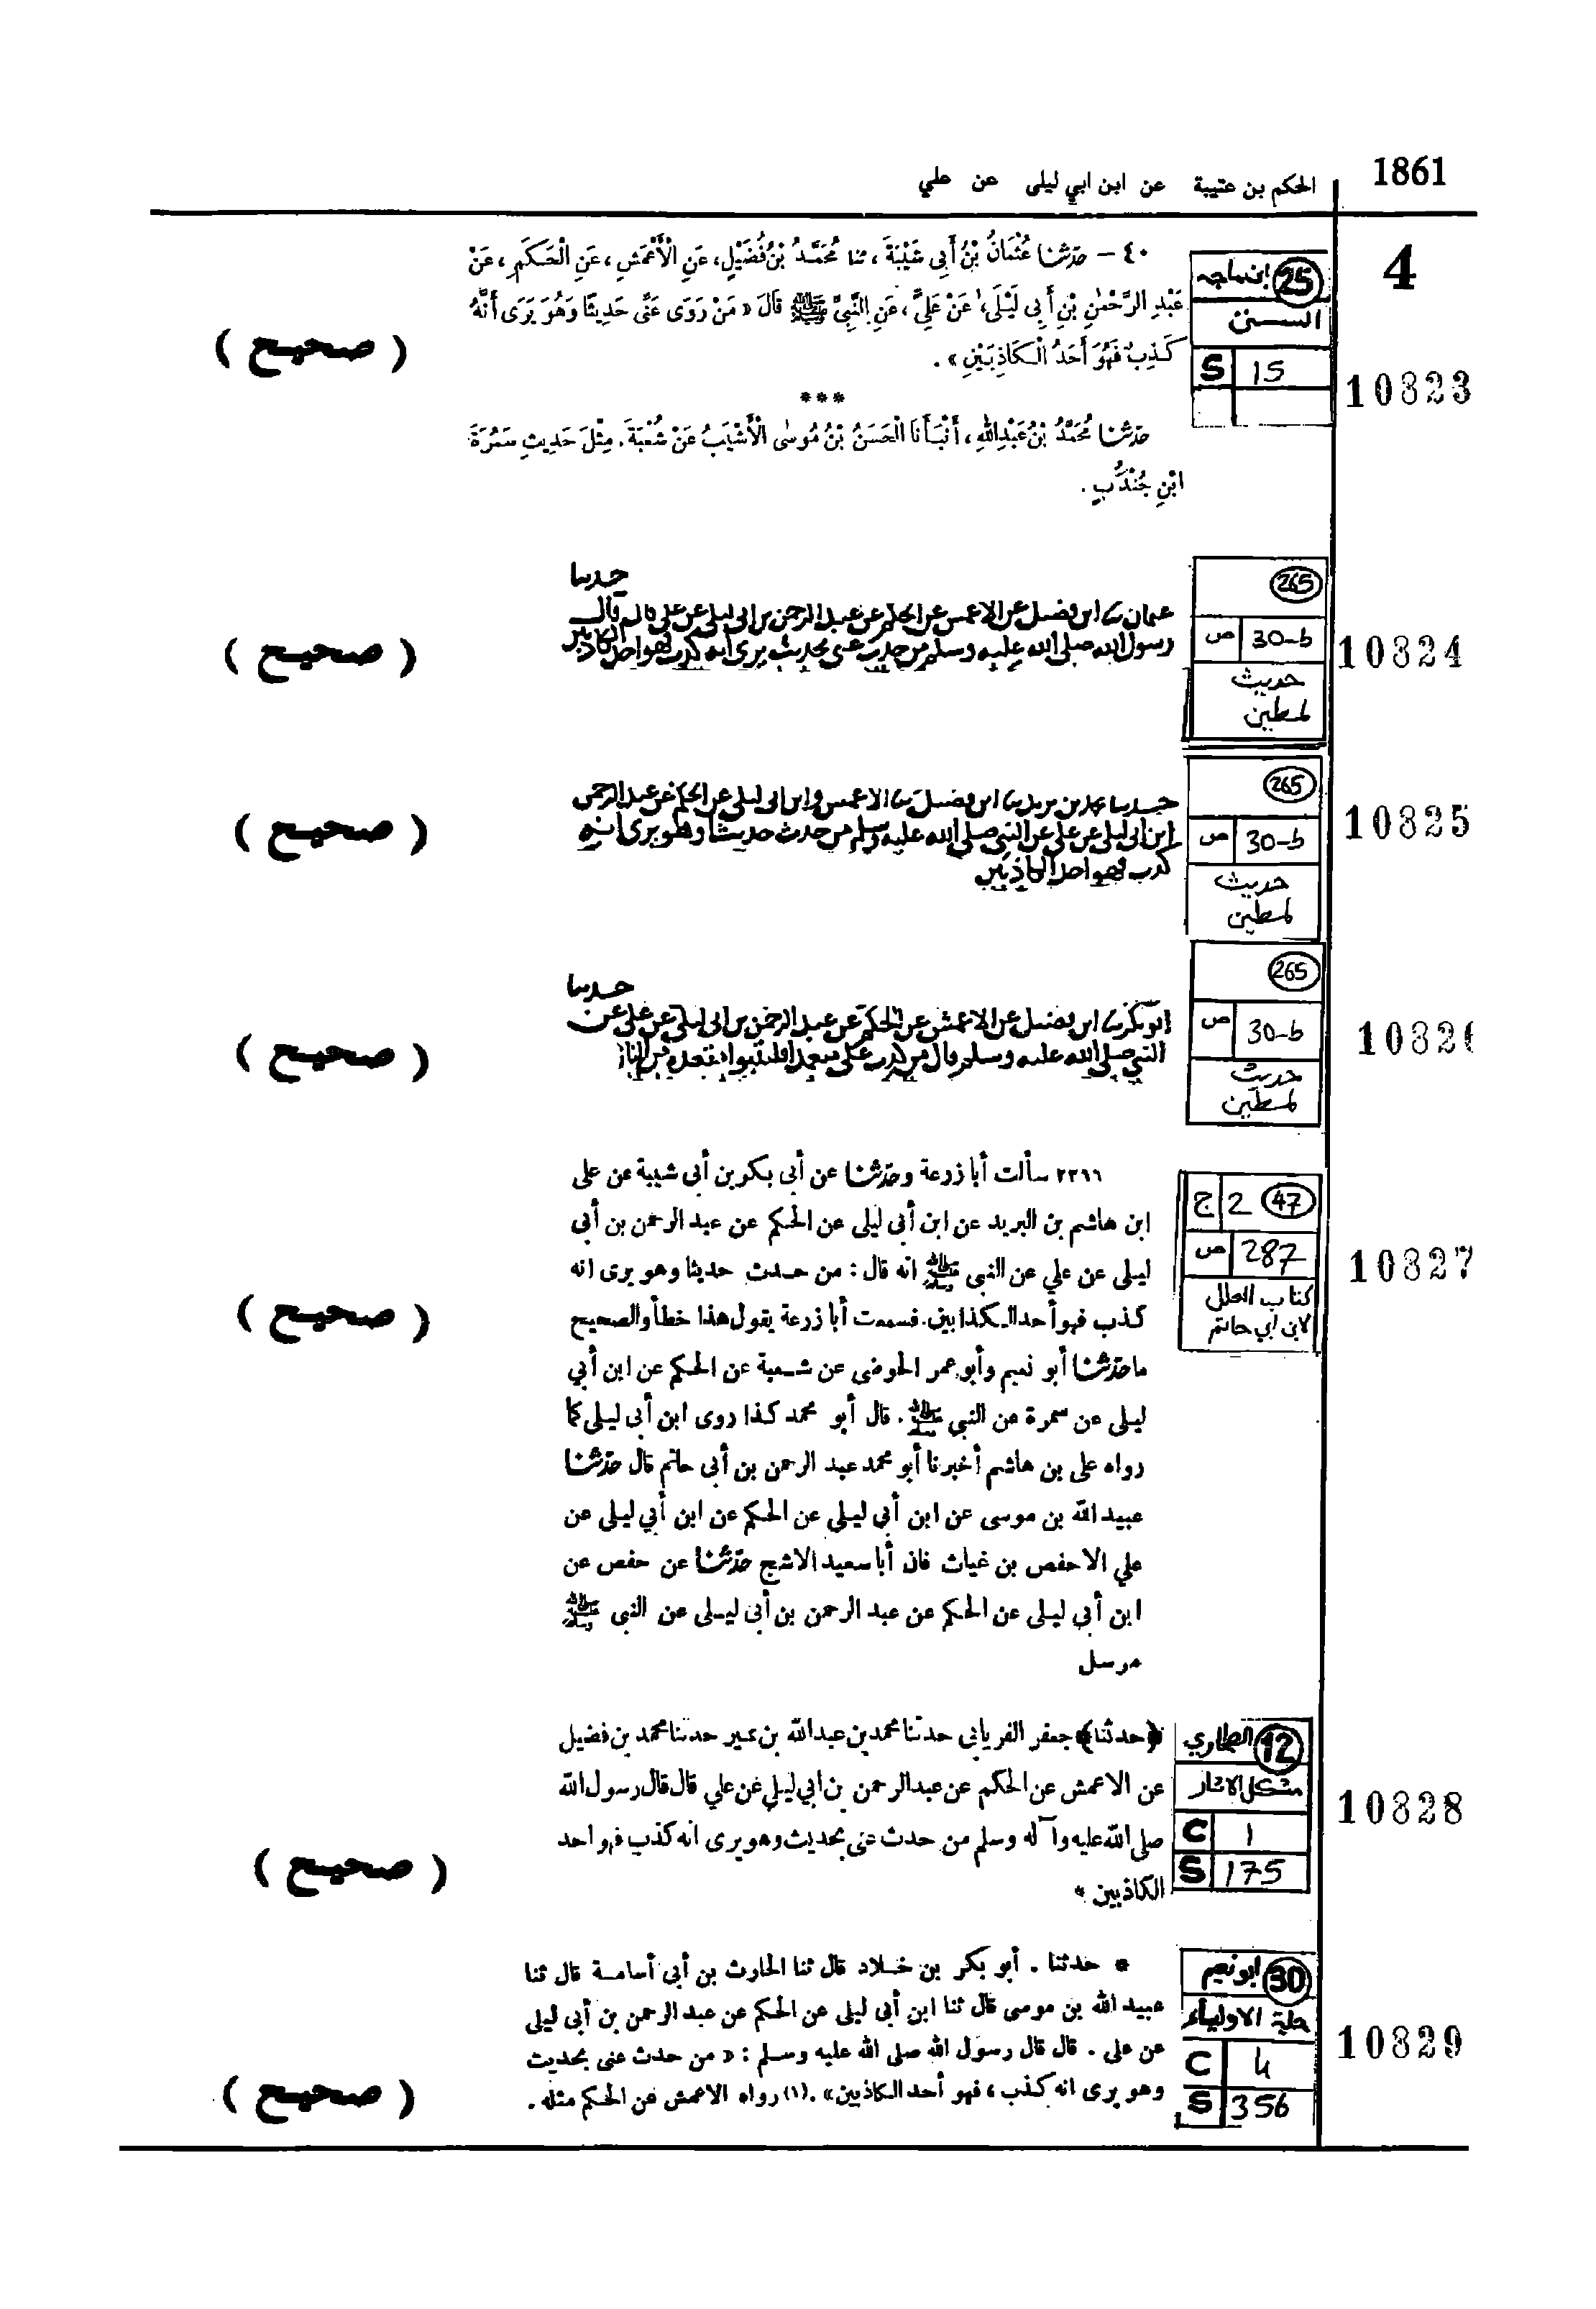 1861
الحكم بن عتيبة عن ابن ابي ليلى عن علي
4
25 ابن ماجه
السنن
S 15
10823
٤٠ – حَدَّثَنَا عُثْمَانُ بْنُ أَبِي شَيْبَةَ ، ثنا مُحَمَّدُ بْنُ فُضَيْلٍ، عَنِ الْأَعْمَشِ ، عَنِ الْحَكَمِ ، عَنْ
عَبْدِ الرَّحْمٰنِ بْنِ أَبِي لَيْلَى، عَنْ عَلِيٍّ ، عَنِ النَّبِيِّ ﷺ قَالَ « مَنْ رَوَى عَنِّي حَدِيثًا وَهُوَ يَرَى أَنَّهُ
كَذِبٌ فَهُوَ أَحَدُ الْكَاذِبَيْنِ » .
***
حَدَّثَنَا مُحَمَّدُ بْنُ عَبْدِاللهِ ، أَنْبَأَنَا الْحَسَنُ بْنُ مُوسٰى الْأَشْيَبُ عَنْ شُعْبَةَ . مِثْلَ حَدِيثِ سَمُرَةَ
ابْنِ جُنْدُبٍ .
( صحيح )
265
ص 30-b
حديث
لمطين
10824
حدسا
عمان سا ابن فضىل عن الاعمس عن الحكم عن عبد الرحمن بن ابى ليلى عن على قال قال
رسول الله صلى الله عليه وسلم من حدث عنى بحديث يرى انه كذب فهو احد الكاذبين
( صحيح )
265
ص 30-b
حديث
لمطين
10825
حدسا محمد بن يزيد سا ابن فضيل سا الاعمس وابن ابى ليلى عن الحكم عن عبد الرحمن
ابن ابى ليلى عن على عن النبى صلى الله عليه وسلم من حدث حديثا وهو يرى انه
كذب فهو احد الكاذبين
( صحيح )
265
ص 30-b
حديث
لمطين
10826
حدسا
ابو بكر سا ابن فضيل عن الاعمش عن الحكم عن عبد الرحمن بن ابى ليلى عن على عن
النبى صلى الله عليه وسلم قال من كذب على متعمدا فليتبوا مقعده من النار
( صحيح )
47 2 ج
ص 287
كتاب العلل
لابن ابي حاتم
10827
٢٣٦٦ سألت أبا زرعة وحدثنا عن أبى بكر بن أبى شيبة عن على
ابن هاشم بن البريد عن ابن أبى ليلى عن الحكم عن عبد الرحمن بن أبى
ليلى عن علي عن النبى ﷺ انه قال : من حدث حديثا وهو يرى انه
كذب فهو أحد الكذابين. فسمعت أبا زرعة يقول هذا خطأ والصحيح
ما حدثنا أبو نعيم وأبو عمر الحوضى عن شعبة عن الحكم عن ابن أبي
ليلى عن سمرة عن النبي ﷺ . قال أبو محمد كذا روى ابن أبى ليلى كما
رواه على بن هاشم أخبرنا أبو محمد عبد الرحمن بن أبى حاتم قال حدثنا
عبيد الله بن موسى عن ابن أبي ليلى عن الحكم عن ابن أبي ليلى عن
علي الا حفص بن غياث فان أبا سعيد الاشج حدثنا عن حفص عن
ابن أبي ليلى عن الحكم عن عبد الرحمن بن أبى ليلى عن النبى ﷺ
مرسل
( صحيح )
12 الطحاوي
مشكل الاثار
C 1
S 175
10828
﴿حدثنا﴾ جعفر الفريابى حدثنا محمد بن عبد الله بن نمير حدثنا محمد بن فضيل
عن الاعمش عن الحكم عن عبد الرحمن بن ابي ليلى عن علي قال قال رسول الله
صلى الله عليه وآله وسلم من حدث عنى بحديث وهو يرى انه كذب فهو احد
الكاذبين *
( صحيح )
30 ابو نعيم
حلية الاولياء
C 4
S 356
10829
* حدثنا . أبو بكر بن خلاد قال ثنا الحارث بن أبى أسامة قال ثنا
عبيد الله بن موسى قال ثنا ابن أبى ليلى عن الحكم عن عبد الرحمن بن أبى ليلى
عن على . قال قال رسول الله صلى الله عليه وسلم : « من حدث عنى بحديث
وهو يرى انه كذب ، فهو أحد الكاذبين» .(١) رواه الاعمش عن الحكم مثله .
( صحيح )